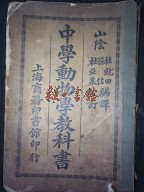 山陰
杜就田編譯
杜亞泉校訂
中學動物學教科書
上海商務印書館印行